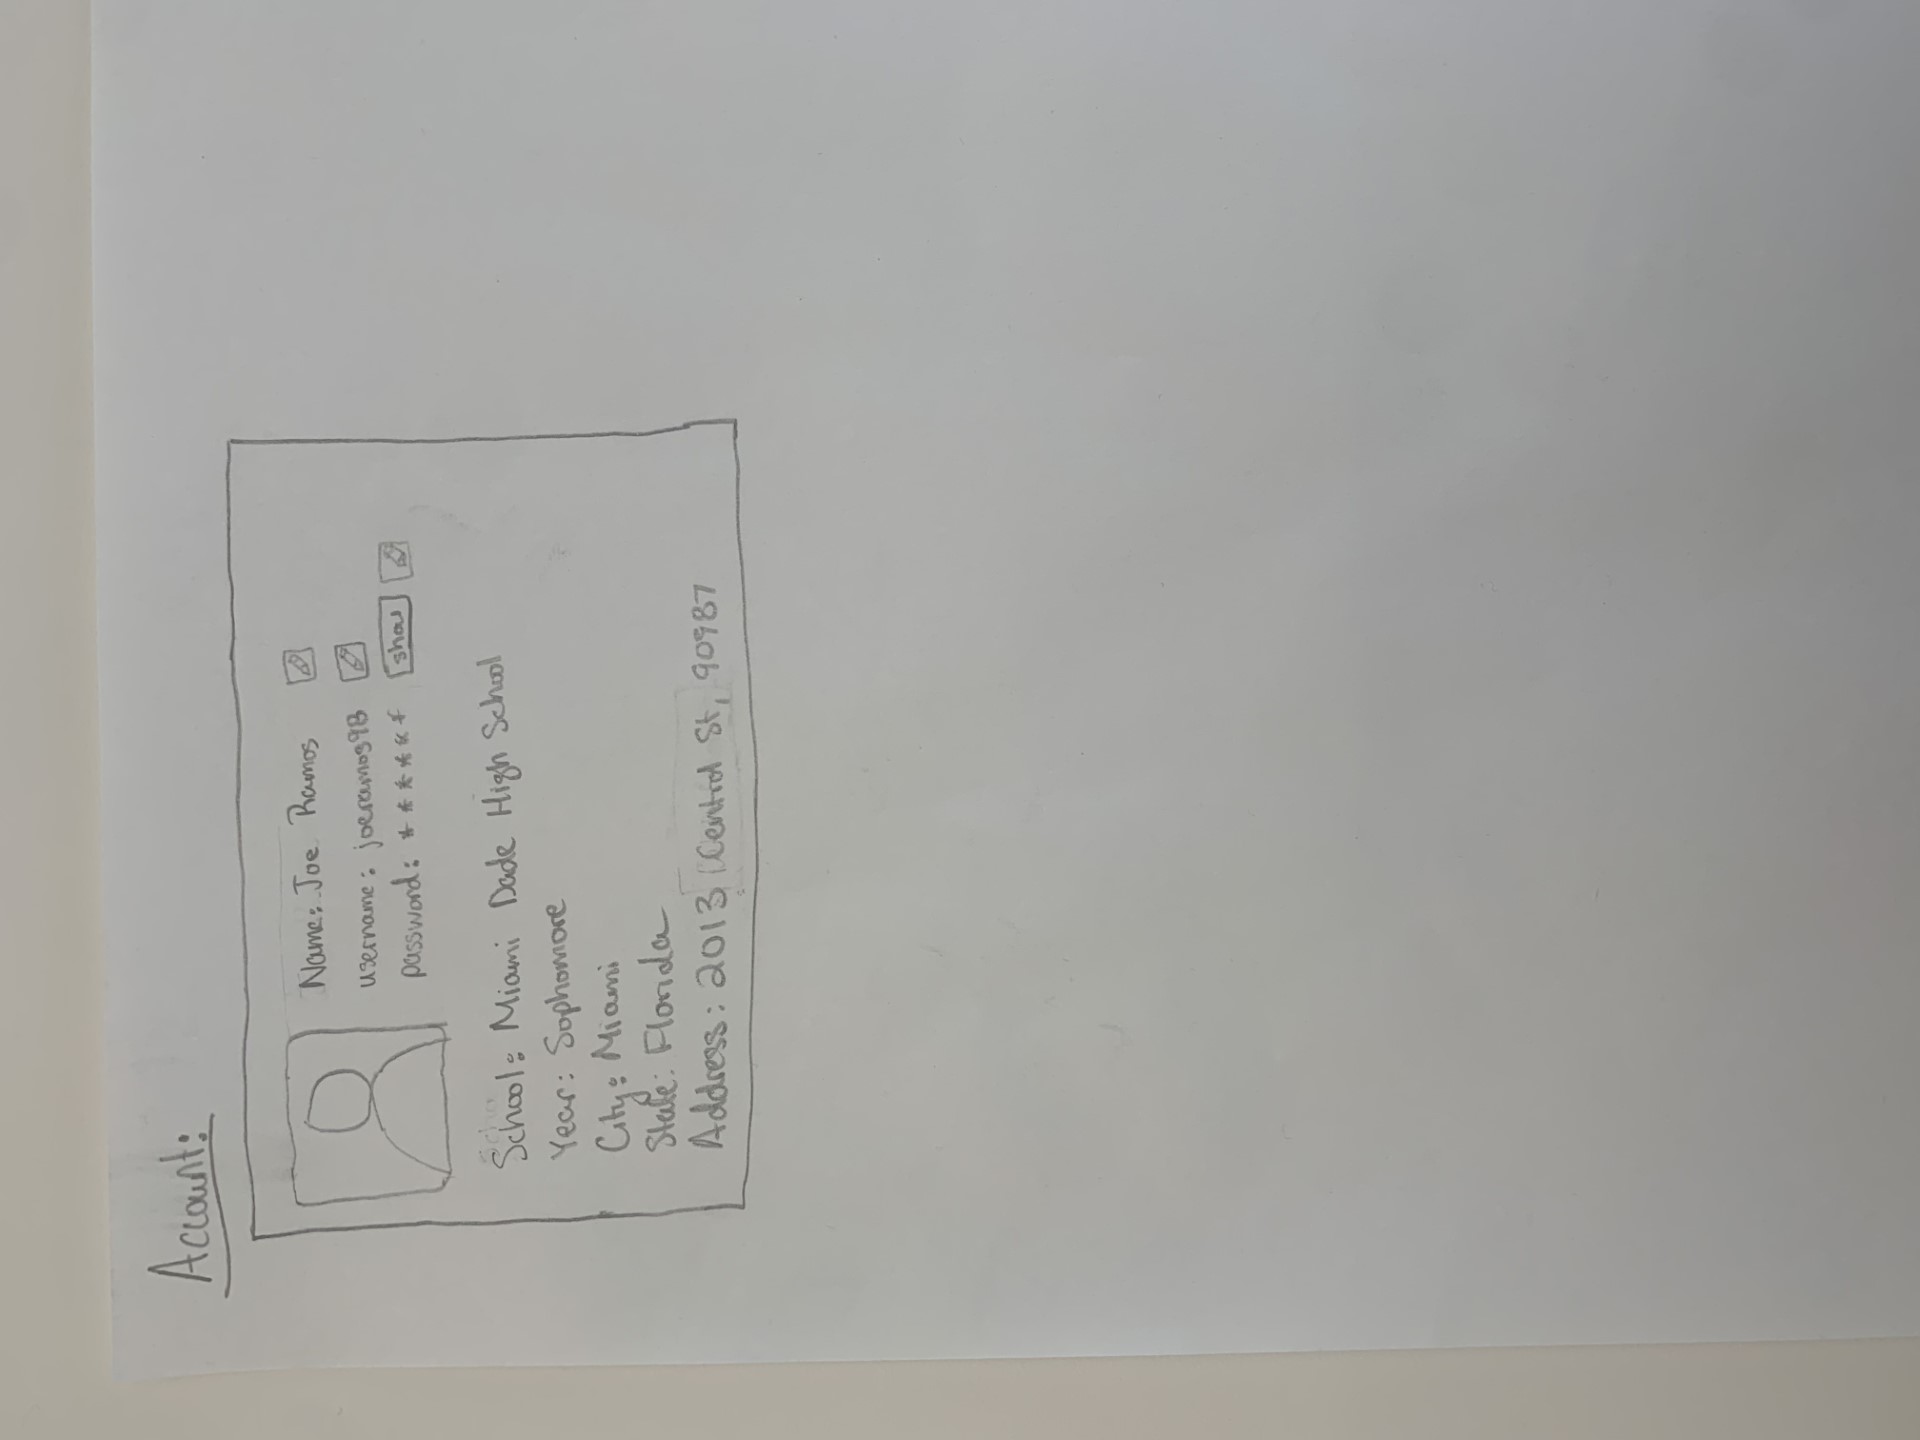 Account:
Name: Joe Ramos
username: joeramos98
password: ******
show
School: Miami Dade High School
Year: Sophomore
City: Miami
State: Florida
Address: 2013 Central St, 90987